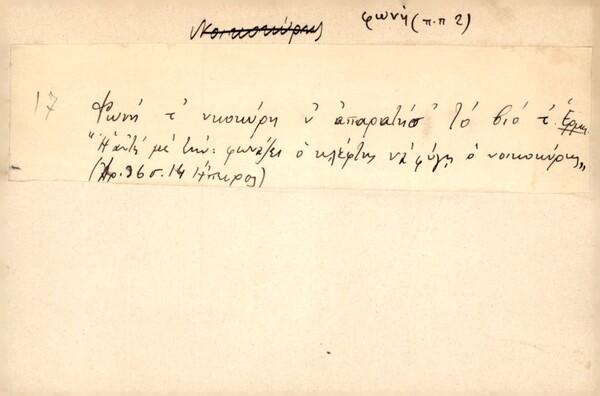 Νοικοκύρης φωνή (π.π 2)
17 Φωνή τ' νκοκύρη ν' απαρατήσ' τό βιό τ'. Ερμ.
"Η αυτή με την: φωνάζει ο κλέφτης νά φύγη ο νοικοκύρης„
(Χρ. 36 σ. 14 Ήπειρος)